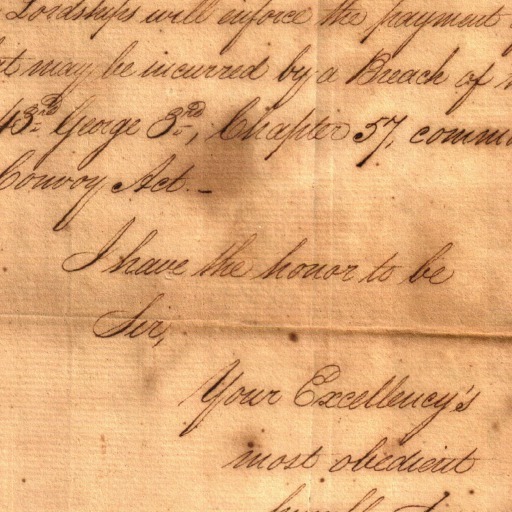 Lordships will enforce the payment
may be incurred by a Breach of
43rd George 3rd, Chapter 57, comm
Convoy Act.
I have the honor to be
Sir,
Your Excellency's
most obedient